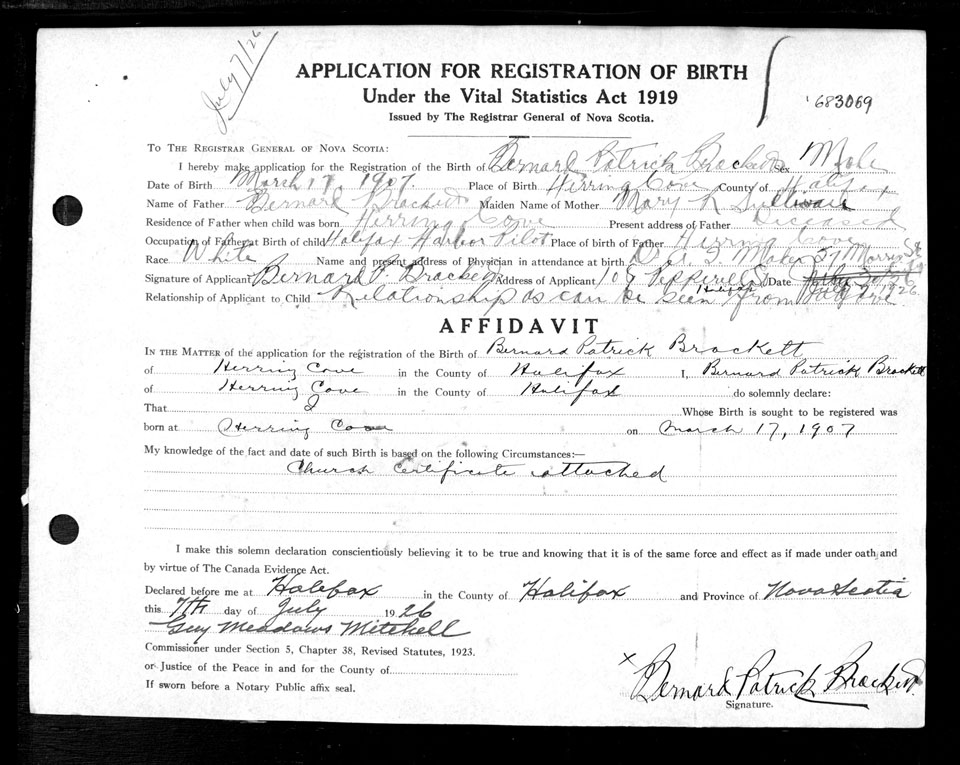 July 7/26
683069
APPLICATION FOR REGISTRATION OF BIRTH
Under the Vital Statistics Act 1919
Issued by The Registrar General of Nova Scotia.
To The Registrar General of Nova Scotia:
I hereby make application for the Registration of the Birth of Bernard Patrick Brackett Sex Male
Date of Birth March 17, 1907 Place of Birth Herring Cove County of Halifax
Name of Father Bernard Brackett Maiden Name of Mother Mary Sullivan
Residence of Father when child was born Herring Cove Present address of Father Diceased
Occupation of Father at Birth of child Halifax Harbor Pilot Place of birth of Father Herring Cove
Race White Name and present address of Physician in attendance at birth Morris St
Signature of Applicant Bernard P. Brackett Address of Applicant Date July 7 1926
Relationship of Applicant to Child Relationship as can be seen from
AFFIDAVIT
In the Matter of the application for the registration of the Birth of Bernard Patrick Brackett
of Herring Cove in the County of Halifax I, Bernard Patrick Brackett
of Herring Cove in the County of Halifax do solemnly declare:
That I Whose Birth is sought to be registered was
born at Herring Cove on March 17, 1907
My knowledge of the fact and date of such Birth is based on the following Circumstances:—
Church Certificate attached
I make this solemn declaration conscientiously believing it to be true and knowing that it is of the same force and effect as if made under oath, and
by virtue of The Canada Evidence Act.
Declared before me at Halifax in the County of Halifax and Province of Nova Scotia
this 7th day of July 1926
Guy Meadows Mitchell
Commissioner under Section 5, Chapter 38, Revised Statutes, 1923.
or Justice of the Peace in and for the County of
If sworn before a Notary Public affix seal.
x Bernard Patrick Brackett.
Signature.